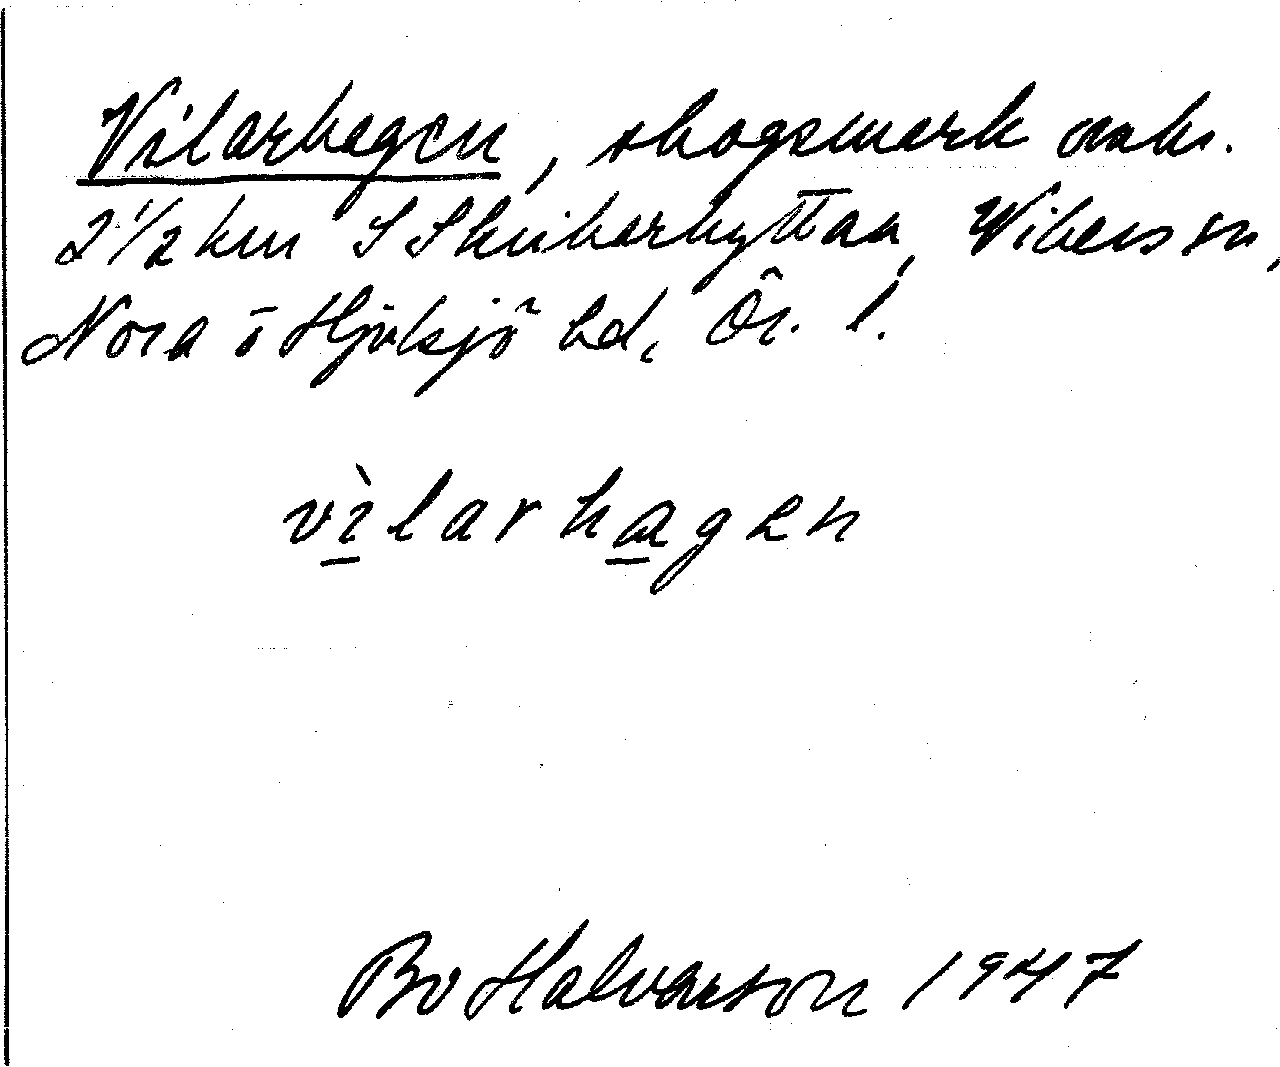 Vilarhagen, skogsmark
2 1/2 km S Skrikarhyttan, Vikersvn,
Nora o Hjulsjö bd, Ör. l.
vìlarhagen
Bo Halvarson 1947